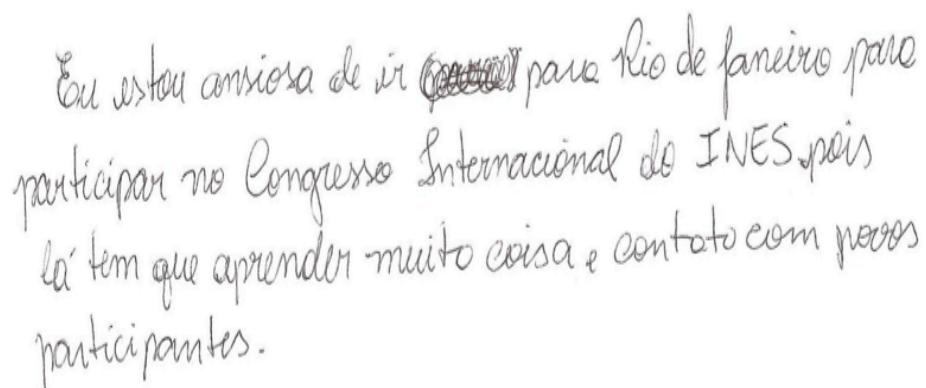 Eu estou ansiosa de ir para Rio de Janeiro para
participar no Congresso Internacional do INES, pois
lá tem que aprender muito coisa, e contato com povos
participantes.